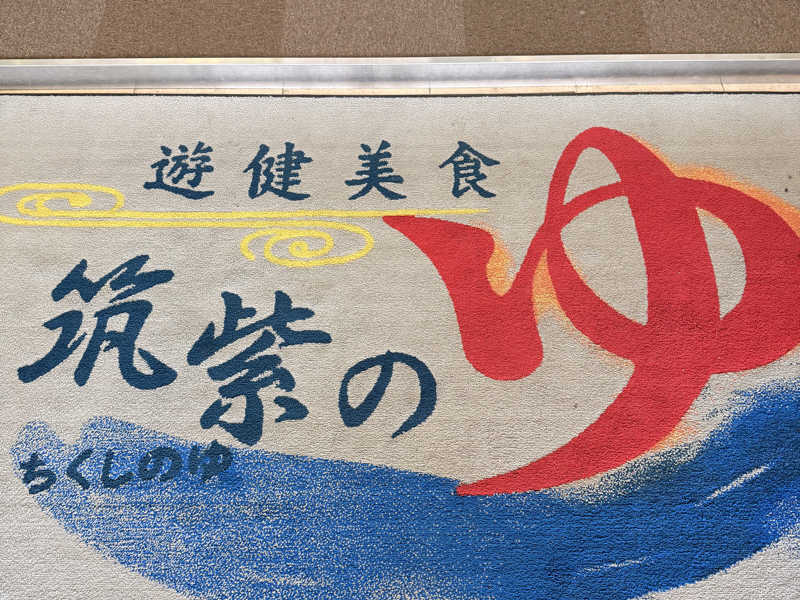 遊健美食
筑紫のゆ
ちくしのゆ